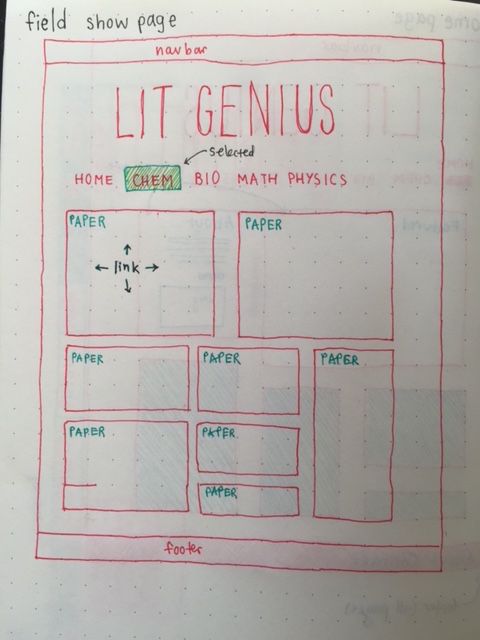 field show page
navbar
LIT GENIUS
selected
HOME CHEM BIO MATH PHYSICS
PAPER PAPER
link
PAPER PAPER PAPER
PAPER PAPER
PAPER
footer